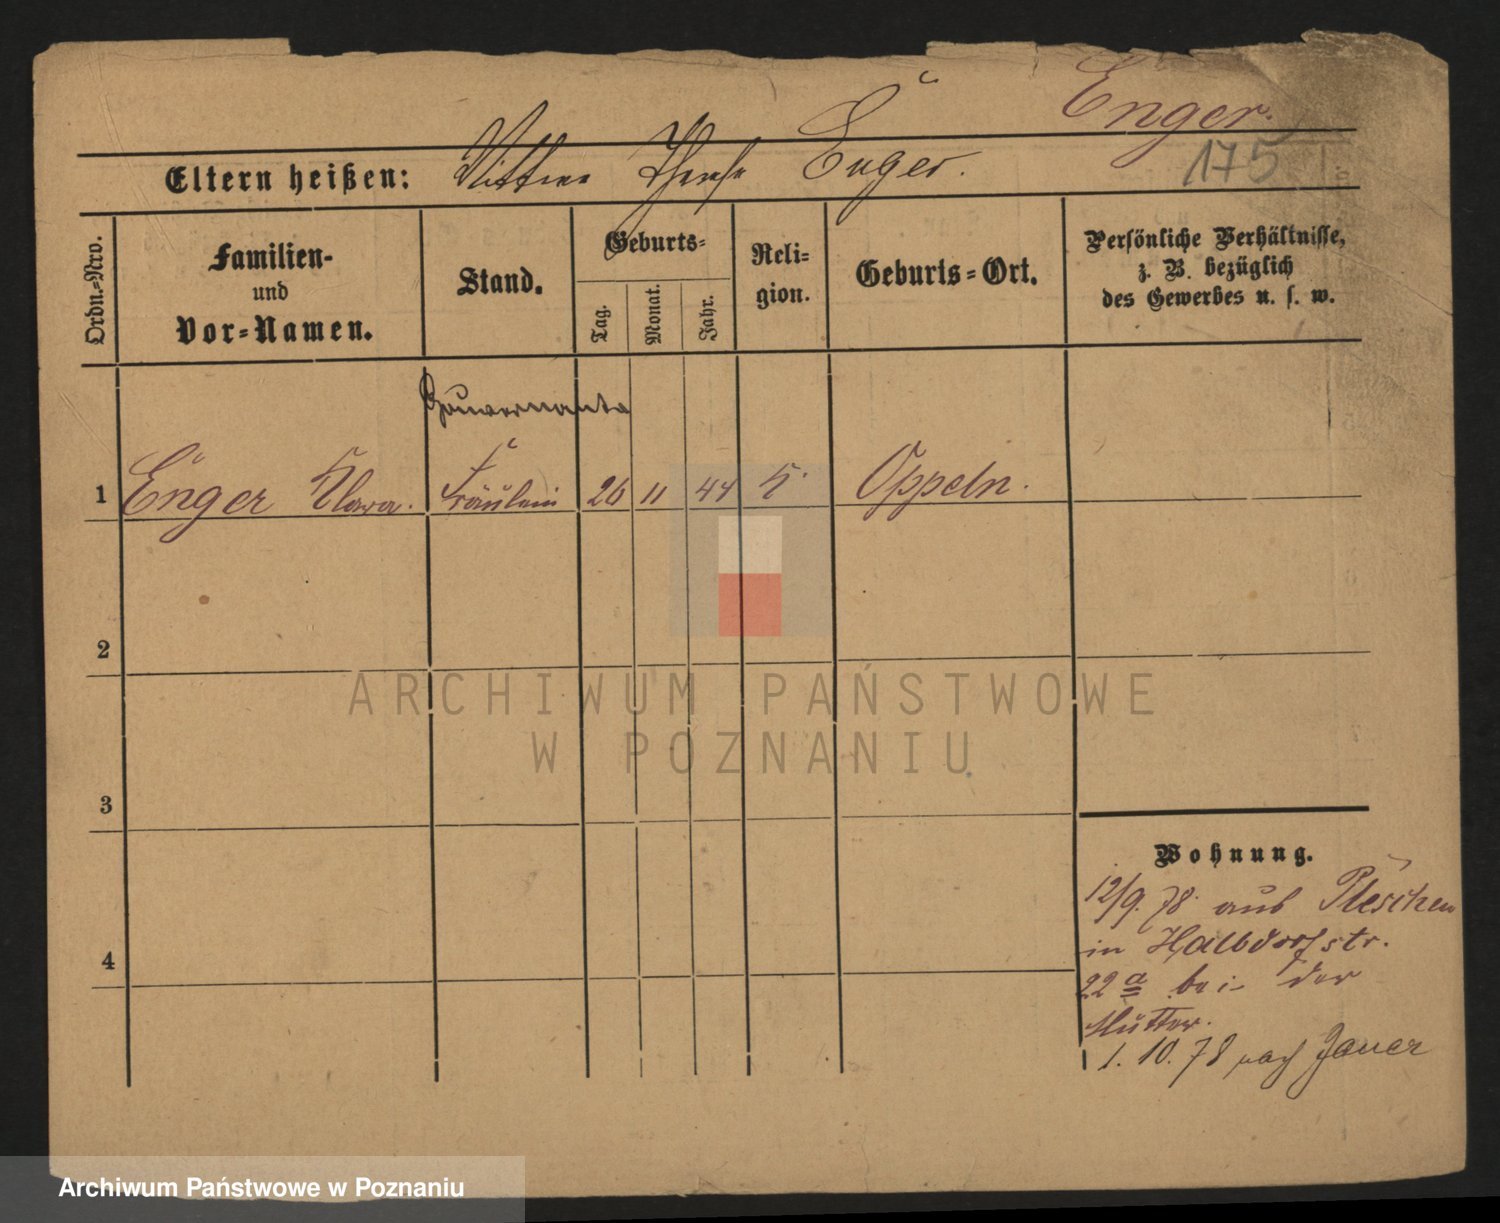 Enger.
175
Eltern heißen: Therese Enger.
Ordn.=Nro.
Familien-
und
Vor=Namen.
Stand.
Geburts=
Tag.
Monat.
Jahr.
Reli=
gion.
Geburts=Ort.
Persönliche Verhältnisse,
z. B. bezüglich
des Gewerbes u. s. w.
Gouvernante
1 Enger Klara. Fräulein 26 11 44 K. Oppeln.
2
3
4
Wohnung.
12/9. 78. aus Pleschen
in Halbdorfstr.
22 a bei der
Mutter.
1. 10. 78 nach Jauer
ARCHIWUM PAŃSTWOWE
W POZNANIU
Archiwum Państwowe w Poznaniu